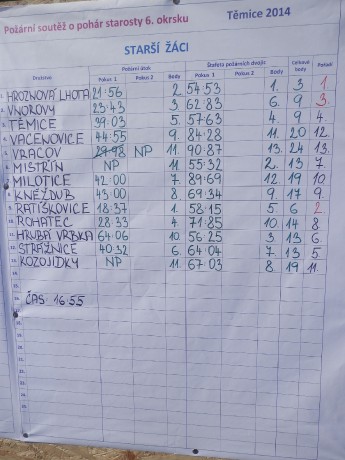 Požární soutěž o pohár starosty 6. okrsku Těmice 2014
STARŠÍ ŽÁCI
Požární útok Štafeta požárních dvojic Celkové body Pořadí
Družstvo Pokus 1 Pokus 2 Body Pokus 1 Pokus 2 Body
1. HROZNOVÁ LHOTA 21:56 2. 54:53 1. 3 1.
2. VNOROVY 23:43 3. 62:83 6. 9 3.
3. TĚMICE 39:03 5. 57:63 4. 9 4.
4. VACENOVICE 44:55 9. 84:28 11. 20 12.
5. VRACOV 29:98 NP 11. 90:87 13. 24 13.
6. MISTŘÍN NP 11. 55:32 2. 13 7.
7. MILOTICE 42:00 7. 89:69 12. 19 10.
8. KNĚŽDUB 43:00 8. 69:34 9. 17 9.
9. RATÍŠKOVICE 18:37 1. 58:15 5. 6 2.
10. ROHATEC 28:33 4. 71:85 10. 14 8.
11. HRUBÁ VRBKA 64:06 10. 56:25 3. 13 6.
12. STRÁŽNICE 40:32 6. 64:04 7. 13 5.
13. KOZOJÍDKY NP 11. 67:03 8. 19 11.
ČAS 16:55